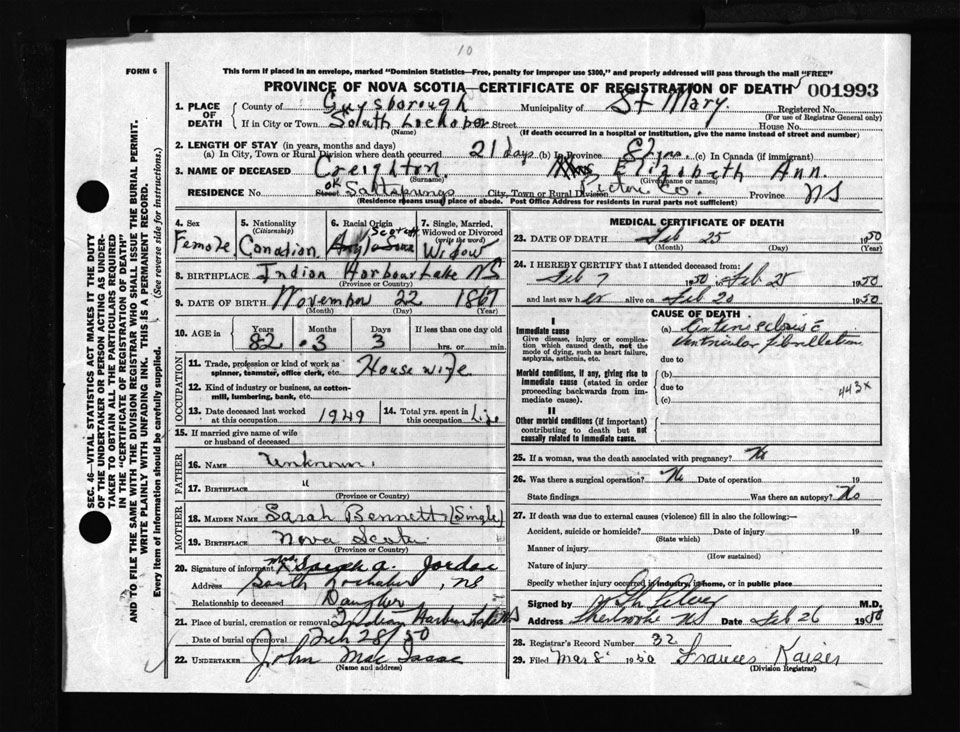 10
FORM 6
This form if placed in an envelope, marked "Dominion Statistics—Free, penalty for improper use $300," and properly addressed will pass through the mail "FREE"
PROVINCE OF NOVA SCOTIA—CERTIFICATE OF REGISTRATION OF DEATH 001993
1. PLACE OF DEATH County of Guysborough Municipality of St Mary. Registered No.
(For use of Registrar General only)
If in City or Town South Lochaber Street House No.
(Name) (If death occurred in a hospital or institution, give the name instead of street and number)
2. LENGTH OF STAY (in years, months and days)
(a) In City, Town or Rural Division where death occurred 21 days (b) In Province (c) In Canada (if immigrant)
3. NAME OF DECEASED Creighton. Elizabeth Ann.
(Surname) (Given name or names)
RESIDENCE No. Street Saltsprings City, Town or Rural Division Pictou Co. Province NS
(Residence means usual place of abode. Post Office Address for residents in rural parts not sufficient)
4. Sex Female
5. Nationality (Citizenship) Canadian
6. Racial Origin
7. Single, Married, Widowed or Divorced (write the word) Widow
8. BIRTHPLACE Indian Harbour Lake NS
(Province or Country)
9. DATE OF BIRTH November 22 1867
(Month) (Day) (Year)
10. AGE in Years Months Days If less than one day old
82 3 3 hrs. or min.
OCCUPATION
11. Trade, profession or kind of work as spinner, teamster, office clerk, etc. House wife
12. Kind of industry or business, as cotton-mill, lumbering, bank, etc.
13. Date deceased last worked at this occupation 1949 14. Total yrs. spent in this occupation Life
15. If married give name of wife or husband of deceased
FATHER
16. NAME Unknown.
17. BIRTHPLACE "
(Province or Country)
MOTHER
18. MAIDEN NAME Sarah Bennett (Single)
19. BIRTHPLACE Nova Scotia
(Province or Country)
20. Signature of informant Mrs Sarah A. Jordan
Address South Lochaber, NS
Relationship to deceased Daughter
21. Place of burial, cremation or removal Indian Harbour Lake NS
Date of burial or removal Feb 28/50
22. UNDERTAKER John Mac Isaac
(Name and address)
MEDICAL CERTIFICATE OF DEATH
23. DATE OF DEATH Feb 25 1950
(Month) (Day)
24. I HEREBY CERTIFY that I attended deceased from:
Feb 7 1950 to Feb 25 1950
and last saw her alive on Feb 20 1950
CAUSE OF DEATH
I
Immediate cause
Give disease, injury or complication which caused death, not the mode of dying, such as heart failure, asphyxia, asthenia, etc.
(a) Arteriosclerosis c̄ ventricular fibrillation
due to
Morbid conditions, if any, giving rise to immediate cause (stated in order proceeding backwards from immediate cause).
(b)
due to
443x
(c)
II
Other morbid conditions (if important) contributing to death but not causally related to immediate cause.
25. If a woman, was the death associated with pregnancy? No
26. Was there a surgical operation? No Date of operation 19
State findings Was there an autopsy? No
27. If death was due to external causes (violence) fill in also the following:—
Accident, suicide or homicide? Date of injury 19
(State which)
Manner of injury
(How sustained)
Nature of injury
Specify whether injury occurred in industry, in home, or in public place
Signed by M.D.
Address Sherbrooke NS Date Feb 26 1950
28. Registrar's Record Number 32
29. Filed Mar 8 1950 Frances Kaizer
(Division Registrar)
SEC. 46—VITAL STATISTICS ACT MAKES IT THE DUTY
OF THE UNDERTAKER OR PERSON ACTING AS UNDER-
TAKER TO OBTAIN ALL THE PARTICULARS REQUIRED
IN THE "CERTIFICATE OF REGISTRATION OF DEATH"
AND TO FILE THE SAME WITH THE DIVISION REGISTRAR WHO SHALL ISSUE THE BURIAL PERMIT.
WRITE PLAINLY WITH UNFADING INK. THIS IS A PERMANENT RECORD.
Every item of information should be carefully supplied. (See reverse side for instructions.)